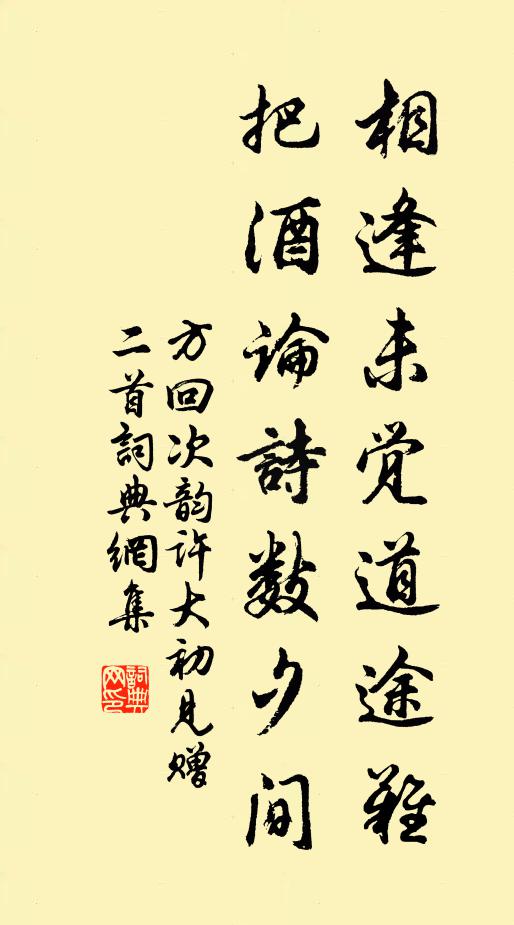 相逢未觉道途難
把酒論詩数夕间
方回次韵許大初見赠
二首詞典網集
詞典
网印